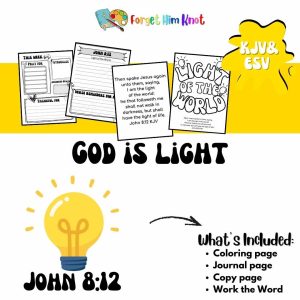 Forget Him Knot
KJV&
ESV
THIS WEEK
JOHN 8:12
Then spake Jesus again
unto them, saying,
I am the light
of the world:
he that followeth me
shall not walk in
darkness, but shall
have the light of life.
John 8:12 KJV
LIGHT
OF THE
WORLD
GOD IS LIGHT
JOHN 8:12
What's Included:
• Coloring page
• Journal page
• Copy page
• Work the Word